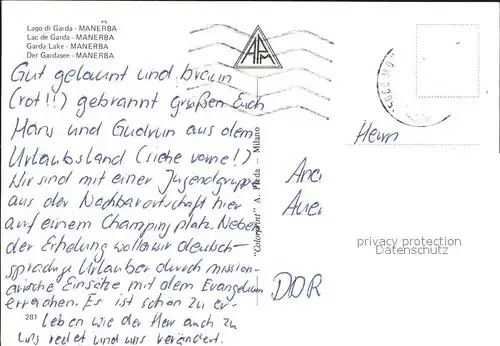 Lago di Garda - MANERBA
Lac de Garda - MANERBA
Garda Lake - MANERBA
Der Gardasee - MANERBA
APM
Gut gelaunt und braun
(rot!!) gebrannt grüßen Euch
Hans und Gudrun aus dem
Urlaubsland (siehe vorne!)
Wir sind mit einer Jugendgruppe
aus der Nachbarortschaft hier
auf einem Champingplatz. Neben
der Erholung wollen wir deutsch-
sprachige Urlauber durch mission-
arische Einsätze mit dem Evangelium
erreichen. Es ist schön zu er-
leben wie der Herr auch zu
uns redet und uns verändert.
281
"Colorprint" A. Preda - Milano
Herrn
And
Auer
DDR
privacy protection
Datenschutz